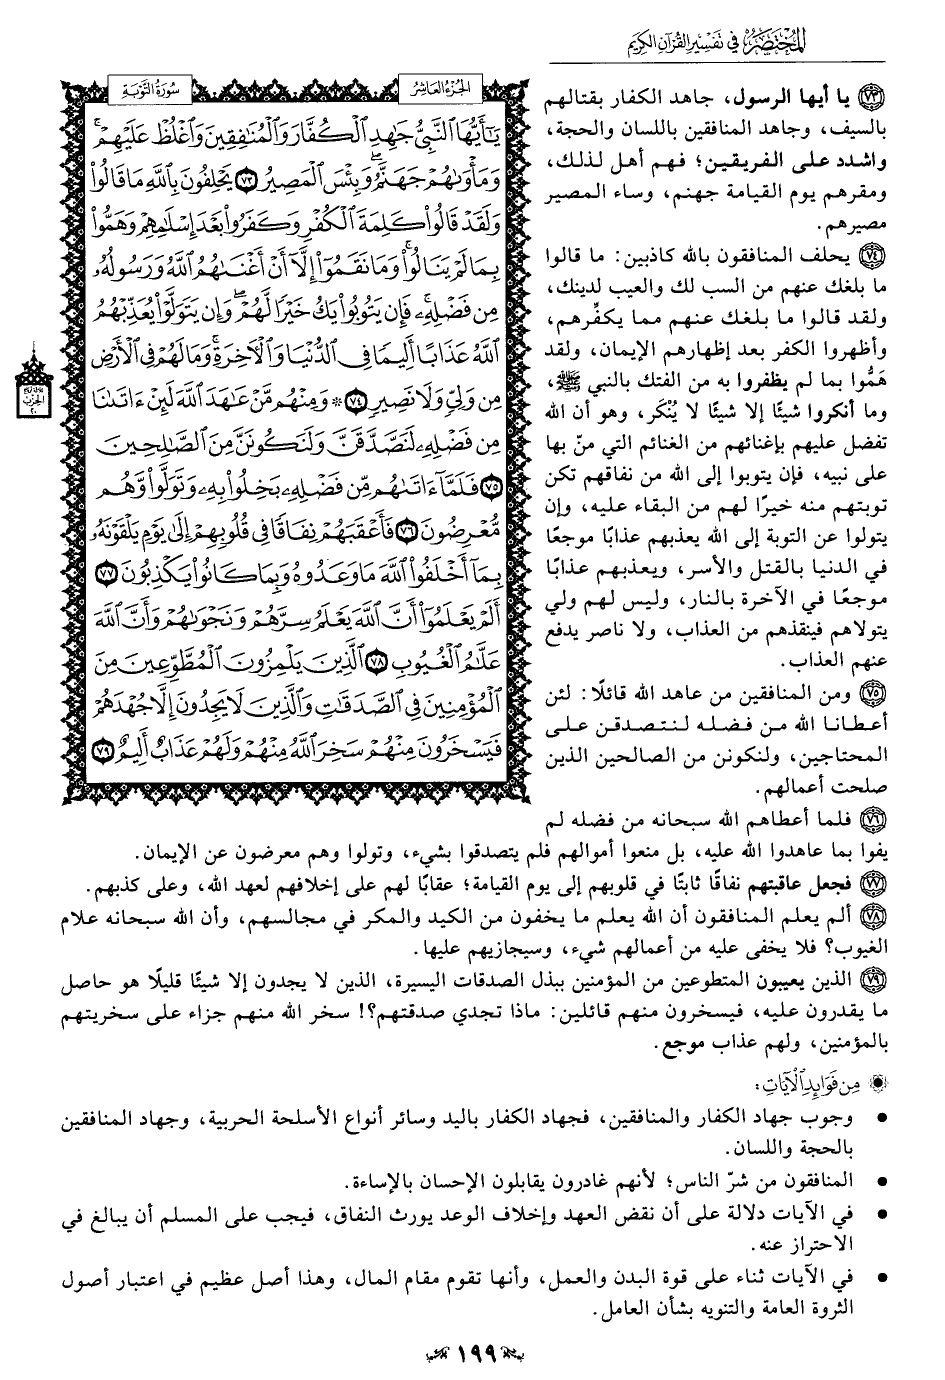 المختصر في تفسير القرآن الكريم
الجزء العاشر
سورة التوبة
يَٰٓأَيُّهَا ٱلنَّبِيُّ جَٰهِدِ ٱلۡكُفَّارَ وَٱلۡمُنَٰفِقِينَ وَٱغۡلُظۡ عَلَيۡهِمۡۚ
وَمَأۡوَىٰهُمۡ جَهَنَّمُۖ وَبِئۡسَ ٱلۡمَصِيرُ ٧٣ يَحۡلِفُونَ بِٱللَّهِ مَا قَالُواْ
وَلَقَدۡ قَالُواْ كَلِمَةَ ٱلۡكُفۡرِ وَكَفَرُواْ بَعۡدَ إِسۡلَٰمِهِمۡ وَهَمُّواْ
بِمَا لَمۡ يَنَالُواْۚ وَمَا نَقَمُوٓاْ إِلَّآ أَنۡ أَغۡنَىٰهُمُ ٱللَّهُ وَرَسُولُهُۥ
مِن فَضۡلِهِۦۚ فَإِن يَتُوبُواْ يَكُ خَيۡرٗا لَّهُمۡۖ وَإِن يَتَوَلَّوۡاْ يُعَذِّبۡهُمُ
ٱللَّهُ عَذَابًا أَلِيمٗا فِي ٱلدُّنۡيَا وَٱلۡأٓخِرَةِۚ وَمَا لَهُمۡ فِي ٱلۡأَرۡضِ
مِن وَلِيّٖ وَلَا نَصِيرٖ ٧٤ ۞ وَمِنۡهُم مَّنۡ عَٰهَدَ ٱللَّهَ لَئِنۡ ءَاتَىٰنَا
مِن فَضۡلِهِۦ لَنَصَّدَّقَنَّ وَلَنَكُونَنَّ مِنَ ٱلصَّٰلِحِينَ
٧٥ فَلَمَّآ ءَاتَىٰهُم مِّن فَضۡلِهِۦ بَخِلُواْ بِهِۦ وَتَوَلَّواْ وَّهُم
مُّعۡرِضُونَ ٧٦ فَأَعۡقَبَهُمۡ نِفَاقٗا فِي قُلُوبِهِمۡ إِلَىٰ يَوۡمِ يَلۡقَوۡنَهُۥ
بِمَآ أَخۡلَفُواْ ٱللَّهَ مَا وَعَدُوهُ وَبِمَا كَانُواْ يَكۡذِبُونَ ٧٧
أَلَمۡ يَعۡلَمُوٓاْ أَنَّ ٱللَّهَ يَعۡلَمُ سِرَّهُمۡ وَنَجۡوَىٰهُمۡ وَأَنَّ ٱللَّهَ
عَلَّٰمُ ٱلۡغُيُوبِ ٧٨ ٱلَّذِينَ يَلۡمِزُونَ ٱلۡمُطَّوِّعِينَ مِنَ
ٱلۡمُؤۡمِنِينَ فِي ٱلصَّدَقَٰتِ وَٱلَّذِينَ لَا يَجِدُونَ إِلَّا جُهۡدَهُمۡ
فَيَسۡخَرُونَ مِنۡهُمۡ سَخِرَ ٱللَّهُ مِنۡهُمۡ وَلَهُمۡ عَذَابٌ أَلِيمٌ ٧٩
الحزب
٢٠
٧٣ يا أيها الرسول، جاهد الكفار بقتالهم
بالسيف، وجاهد المنافقين باللسان والحجة،
واشدد على الفريقين؛ فهم أهل لذلك،
ومقرهم يوم القيامة جهنم، وساء المصير
مصيرهم.
٧٤ يحلف المنافقون بالله كاذبين: ما قالوا
ما بلغك عنهم من السب لك والعيب لدينك،
ولقد قالوا ما بلغك عنهم مما يكفِّرهم،
وأظهروا الكفر بعد إظهارهم الإيمان، ولقد
هَمُّوا بما لم يظفروا به من الفتك بالنبي ﷺ،
وما أنكروا شيئًا إلا شيئًا لا يُنْكَر، وهو أن الله
تفضل عليهم بإغنائهم من الغنائم التي منّ بها
على نبيه، فإن يتوبوا إلى الله من نفاقهم تكن
توبتهم منه خيرًا لهم من البقاء عليه، وإن
يتولوا عن التوبة إلى الله يعذبهم عذابًا موجعًا
في الدنيا بالقتل والأسر، ويعذبهم عذابًا
موجعًا في الآخرة بالنار، وليس لهم ولي
يتولاهم فينقذهم من العذاب، ولا ناصر يدفع
عنهم العذاب.
٧٥ ومن المنافقين من عاهد الله قائلًا: لئن
أعطانا الله من فضله لنتصدقن على
المحتاجين، ولنكونن من الصالحين الذين
صلحت أعمالهم.
٧٦ فلما أعطاهم الله سبحانه من فضله لم
يفوا بما عاهدوا الله عليه، بل منعوا أموالهم فلم يتصدقوا بشيء، وتولوا وهم معرضون عن الإيمان.
٧٧ فجعل عاقبتهم نفاقًا ثابتًا في قلوبهم إلى يوم القيامة؛ عقابًا لهم على إخلافهم لعهد الله، وعلى كذبهم.
٧٨ ألم يعلم المنافقون أن الله يعلم ما يخفون من الكيد والمكر في مجالسهم، وأن الله سبحانه علام
الغيوب؟ فلا يخفى عليه من أعمالهم شيء، وسيجازيهم عليها.
٧٩ الذين يعيبون المتطوعين من المؤمنين ببذل الصدقات اليسيرة، الذين لا يجدون إلا شيئًا قليلًا هو حاصل
ما يقدرون عليه، فيسخرون منهم قائلين: ماذا تجدي صدقتهم؟! سخر الله منهم جزاء على سخريتهم
بالمؤمنين، ولهم عذاب موجع.
من فوائد الآيات:
• وجوب جهاد الكفار والمنافقين، فجهاد الكفار باليد وسائر أنواع الأسلحة الحربية، وجهاد المنافقين
بالحجة واللسان.
• المنافقون من شرّ الناس؛ لأنهم غادرون يقابلون الإحسان بالإساءة.
• في الآيات دلالة على أن نقض العهد وإخلاف الوعد يورث النفاق، فيجب على المسلم أن يبالغ في
الاحتراز عنه.
• في الآيات ثناء على قوة البدن والعمل، وأنها تقوم مقام المال، وهذا أصل عظيم في اعتبار أصول
الثروة العامة والتنويه بشأن العامل.
١٩٩